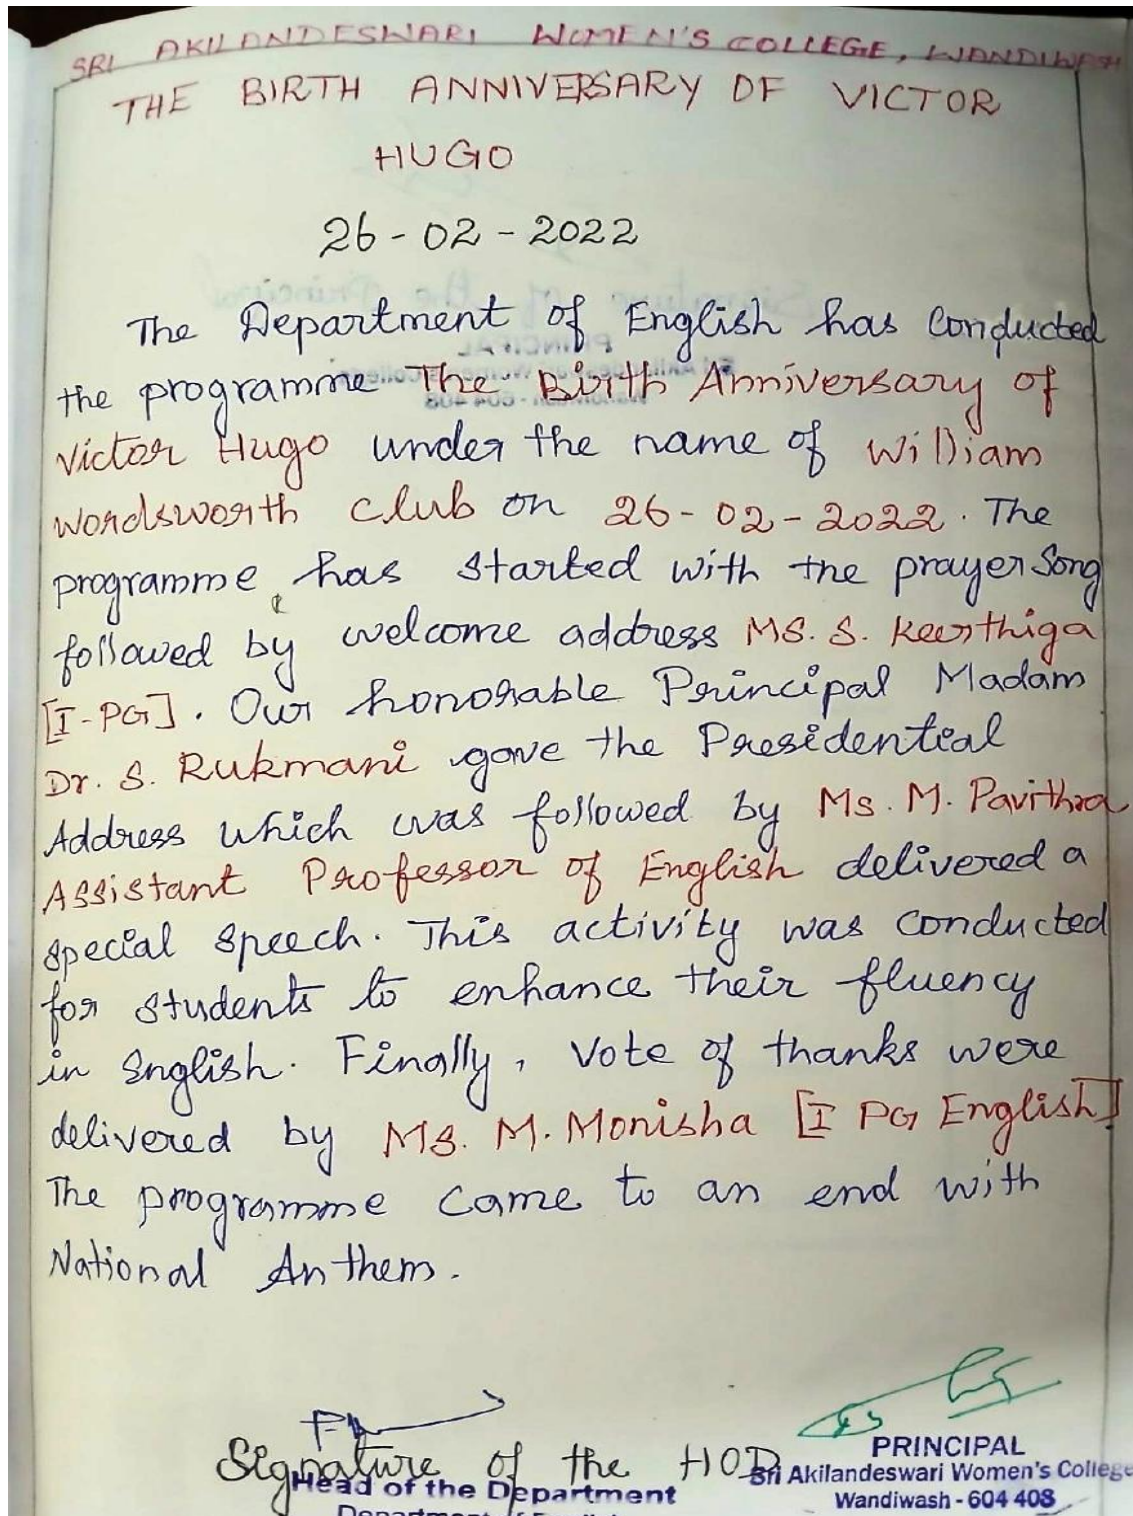 SRI AKILANDESWARI WOMEN'S COLLEGE, WANDIWASH
THE BIRTH ANNIVERSARY OF VICTOR
HUGO
26-02-2022
The Department of English has Conducted
the programme The Birth Anniversary of
Victor Hugo under the name of William
Wordsworth Club on 26-02-2022. The
programme has started with the prayer Song
followed by welcome address MS. S. Keerthiga
[I-PG]. Our honorable Principal Madam
Dr. S. Rukmani gave the Presidential
Address which was followed by Ms. M. Pavithra
Assistant Professor of English delivered a
special speech. This activity was conducted
for students to enhance their fluency
in English. Finally, Vote of thanks were
delivered by Ms. M. Monisha [I PG English]
The programme came to an end with
National Anthem.
Signature of the HOD
Head of the Department
Department of English
PRINCIPAL
Sri Akilandeswari Women's College
Wandiwash - 604 408